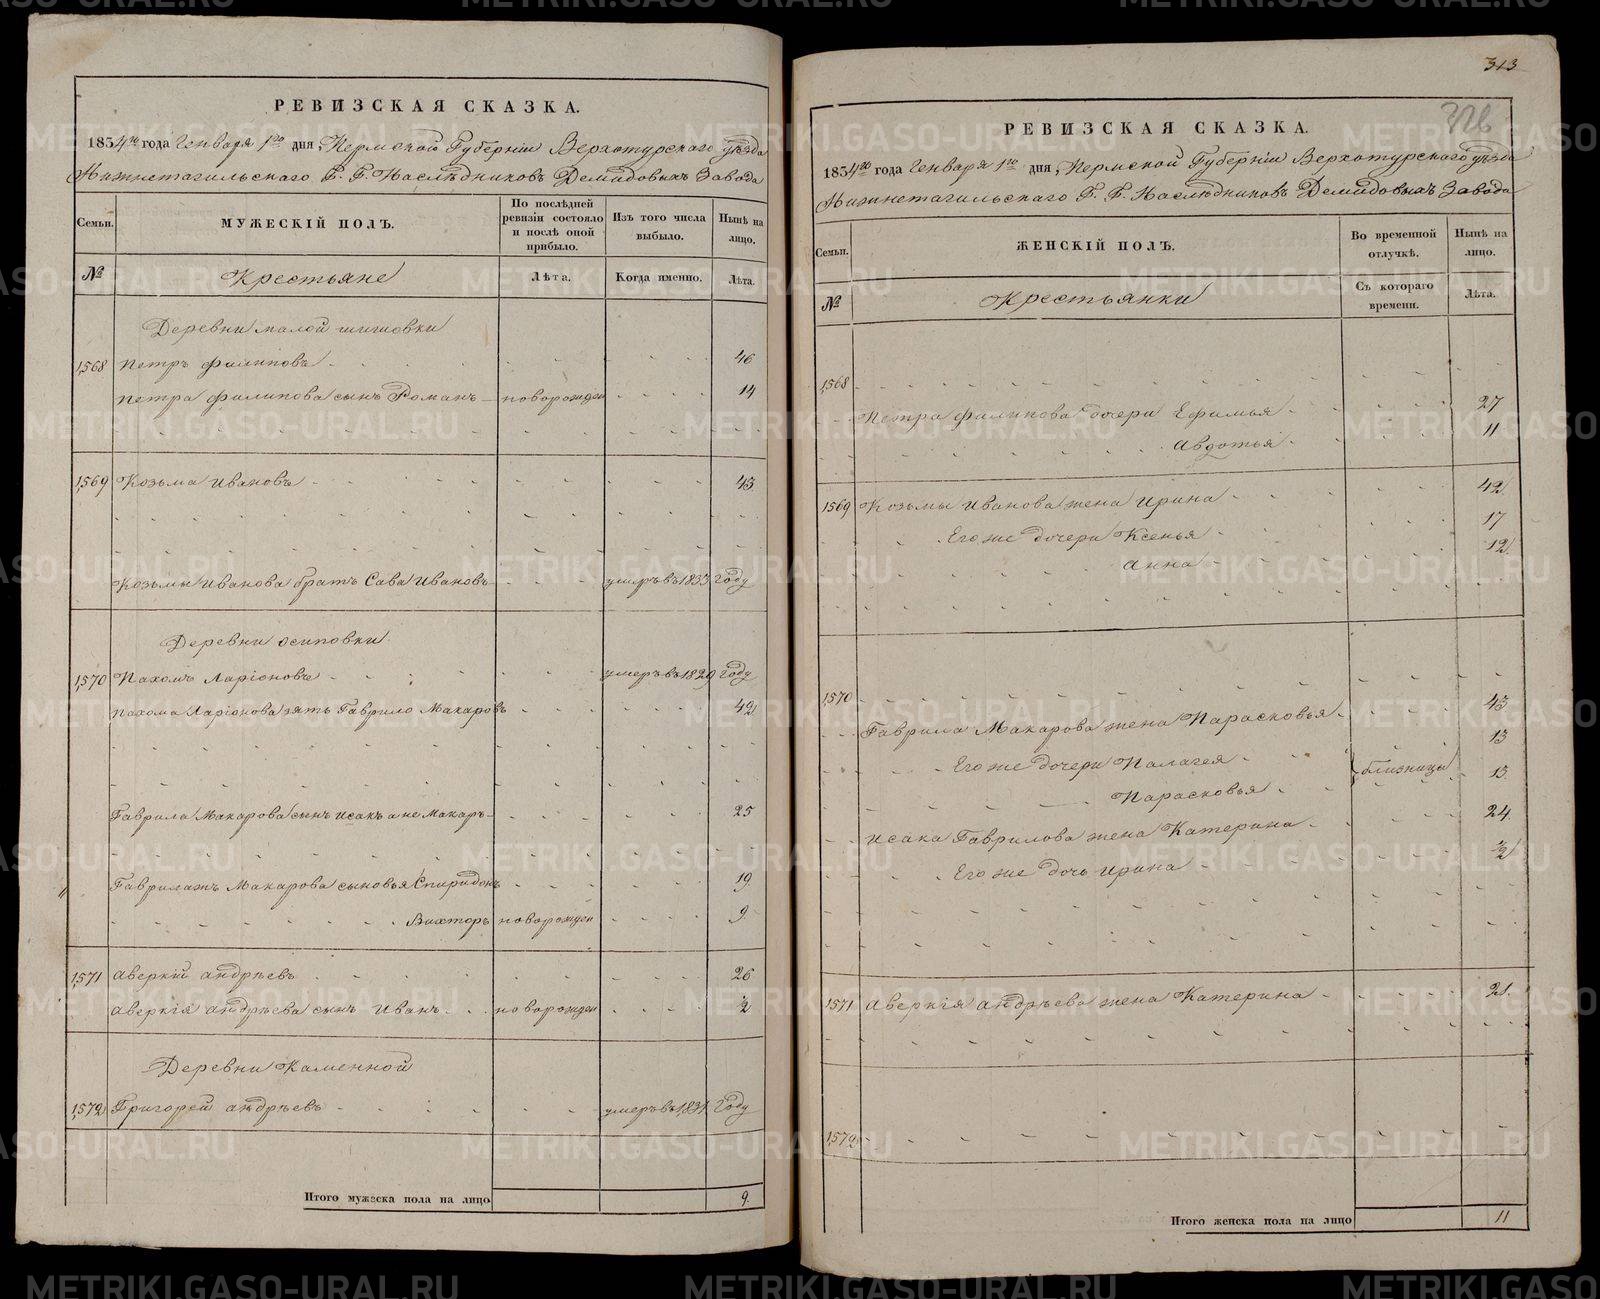 РЕВИЗСКАЯ СКАЗКА.
1834го года Генваря 1го дня, Пермской Губернiи Верхотурскаго уѣзда
Нижнетагильскаго Г. Г. Наслѣдниковъ Демидовыхъ Завода
Семьи.
МУЖЕСКIЙ ПОЛЪ.
По послѣдней ревизiи состояло и послѣ оной прибыло.
Изъ того числа выбыло.
Нынѣ на лицо.
№
Крестьяне
Лѣта.
Когда именно.
Лѣта.
Деревни малой шишовки
1,568 Петръ Филиповъ 46
Петра Филипова сынъ Романъ новорожден 14
1,569 Козьма Ивановъ 43
Козьмы Иванова братъ Сава Ивановъ умеръ въ 1833 году
Деревни осиповки
1,570 Пахомъ Ларiоновъ умеръ въ 1829 году
Пахома Ларiонова зять Гаврило Макаровъ 42
Гаврила Макарова сынъ исакъ а не Макаръ 25
Гаврилажъ Макарова сыновья Спиридонъ 19
Вихторъ новорожден 9
1,571 аверкiй андрѣевъ 26
аверкiя андрѣева сынъ Иванъ новорожден 2
Деревни Каменной
1,572 Григорей андрѣевъ умеръ въ 1831 году
Итого мужеска пола на лицо 9.
313
РЕВИЗСКАЯ СКАЗКА.
1834го года Генваря 1го дня, Пермской Губернiи Верхотурскаго уѣзда
Нижнетагильскаго Г. Г. Наслѣдниковъ Демидовыхъ Завода
Семьи.
ЖЕНСКIЙ ПОЛЪ.
Во временной отлучкѣ.
Нынѣ на лицо.
№
Крестьянки
Съ котораго времени.
Лѣта.
1,568
Петра Филипова дочери Ефимья 27
авдотья 11
1569 Козьмы Иванова жена Ирина 42
Его же дочери Ксенья 17
анна 12
1,570
Гаврила Макарова жена Парасковья 43
Его же дочери Палагея 13
близницы
Парасковья 13
исака Гаврилова жена Катерина 24.
Его же дочь ирина 1/2
1571 аверкiя андрѣева жена Катерина 21.
1,572
Итого женска пола на лицо 11
METRIKI.GASO-URAL.RU